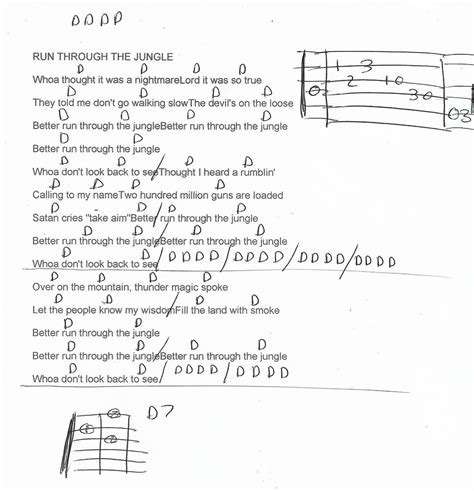 D D D D
RUN THROUGH THE JUNGLE
D D D D
Whoa thought it was a nightmareLord it was so true
D D D D
They told me don't go walking slowThe devil's on the loose
D D D D
Better run through the jungleBetter run through the jungle
D D
Better run through the jungle
D D D D
Whoa don't look back to see/Thought I heard a rumblin'
D D D D
Calling to my nameTwo hundred million guns are loaded
D D D D
Satan cries "take aim"Better/run through the jungle
D D D D
Better run through the jungle/Better run through the jungle
D D / D D D D / D D D D / D D D D / D D D D
Whoa don't look back to see
D D D D
Over on the mountain, thunder magic spoke
D D D D
Let the people know my wisdom/Fill the land with smoke
D D
Better run through the jungle
D D D D
Better run through the jungle/Better run through the jungle
D D / D D D D / D D D D
Whoa don't look back to see
1 3
2 10
0 30
03
D7
2
1
2